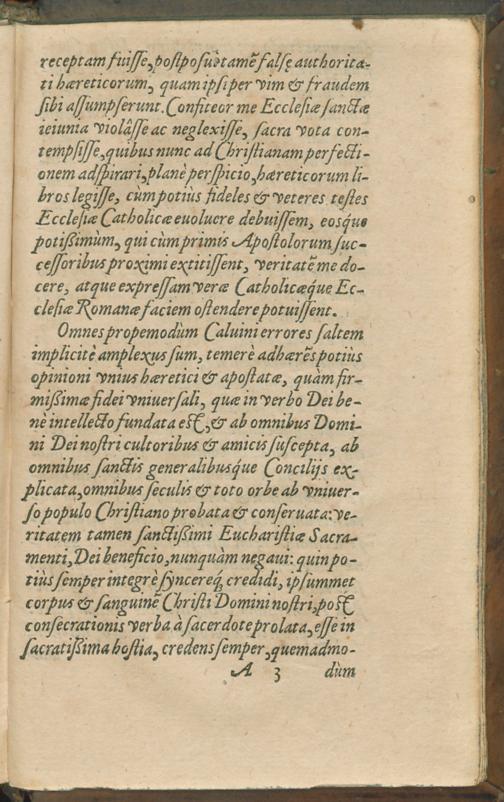 receptam fuisse, postposui tamẽ falsę authorita-
ti hæreticorum, quam ipsi per vim & fraudem
sibi assumpserunt. Confiteor me Ecclesiæ sanctæ
ieiunia violâsse ac neglexisse, sacra vota con-
tempsisse, quibus nunc ad Christianam perfecti-
onem adspirari, planè perspicio, hæreticorum li-
bros legisse, cùm potiùs fideles & veteres testes
Ecclesiæ Catholicæ euoluere debuissem, eosque
potißimùm, qui cùm primis Apostolorum suc-
cessoribus proximi extitissent, veritatẽ me do-
cere, atque expressam veræ Catholicæq́ue Ec-
clesiæ Romanæ faciem ostendere potuissent.
Omnes propemodùm Caluini errores saltem
implicitè amplexus sum, temerè adhærẽs potiùs
opinioni vnius hæretici & apostatæ, quàm fir-
mißimæ fidei vniuersali, quæ in verbo Dei be-
nè intellecto fundata est, & ab omnibus Domi-
ni Dei nostri cultoribus & amicis suscepta, ab
omnibus sanctis generalibusq́ue Concilijs ex-
plicata, omnibus seculis & toto orbe ab vniuer-
so populo Christiano probata & conseruata: ve-
ritatem tamen sanctißimi Eucharistiæ Sacra-
menti, Dei beneficio, nunquàm negaui: quin po-
tiùs semper integrè syncereq́; credidi, ipsummet
corpus & sanguinẽ Christi Domini nostri, post
consecrationis verba à sacerdote prolata, esse in
sacratißima hostia, credens semper, quemadmo-
A 3 dùm